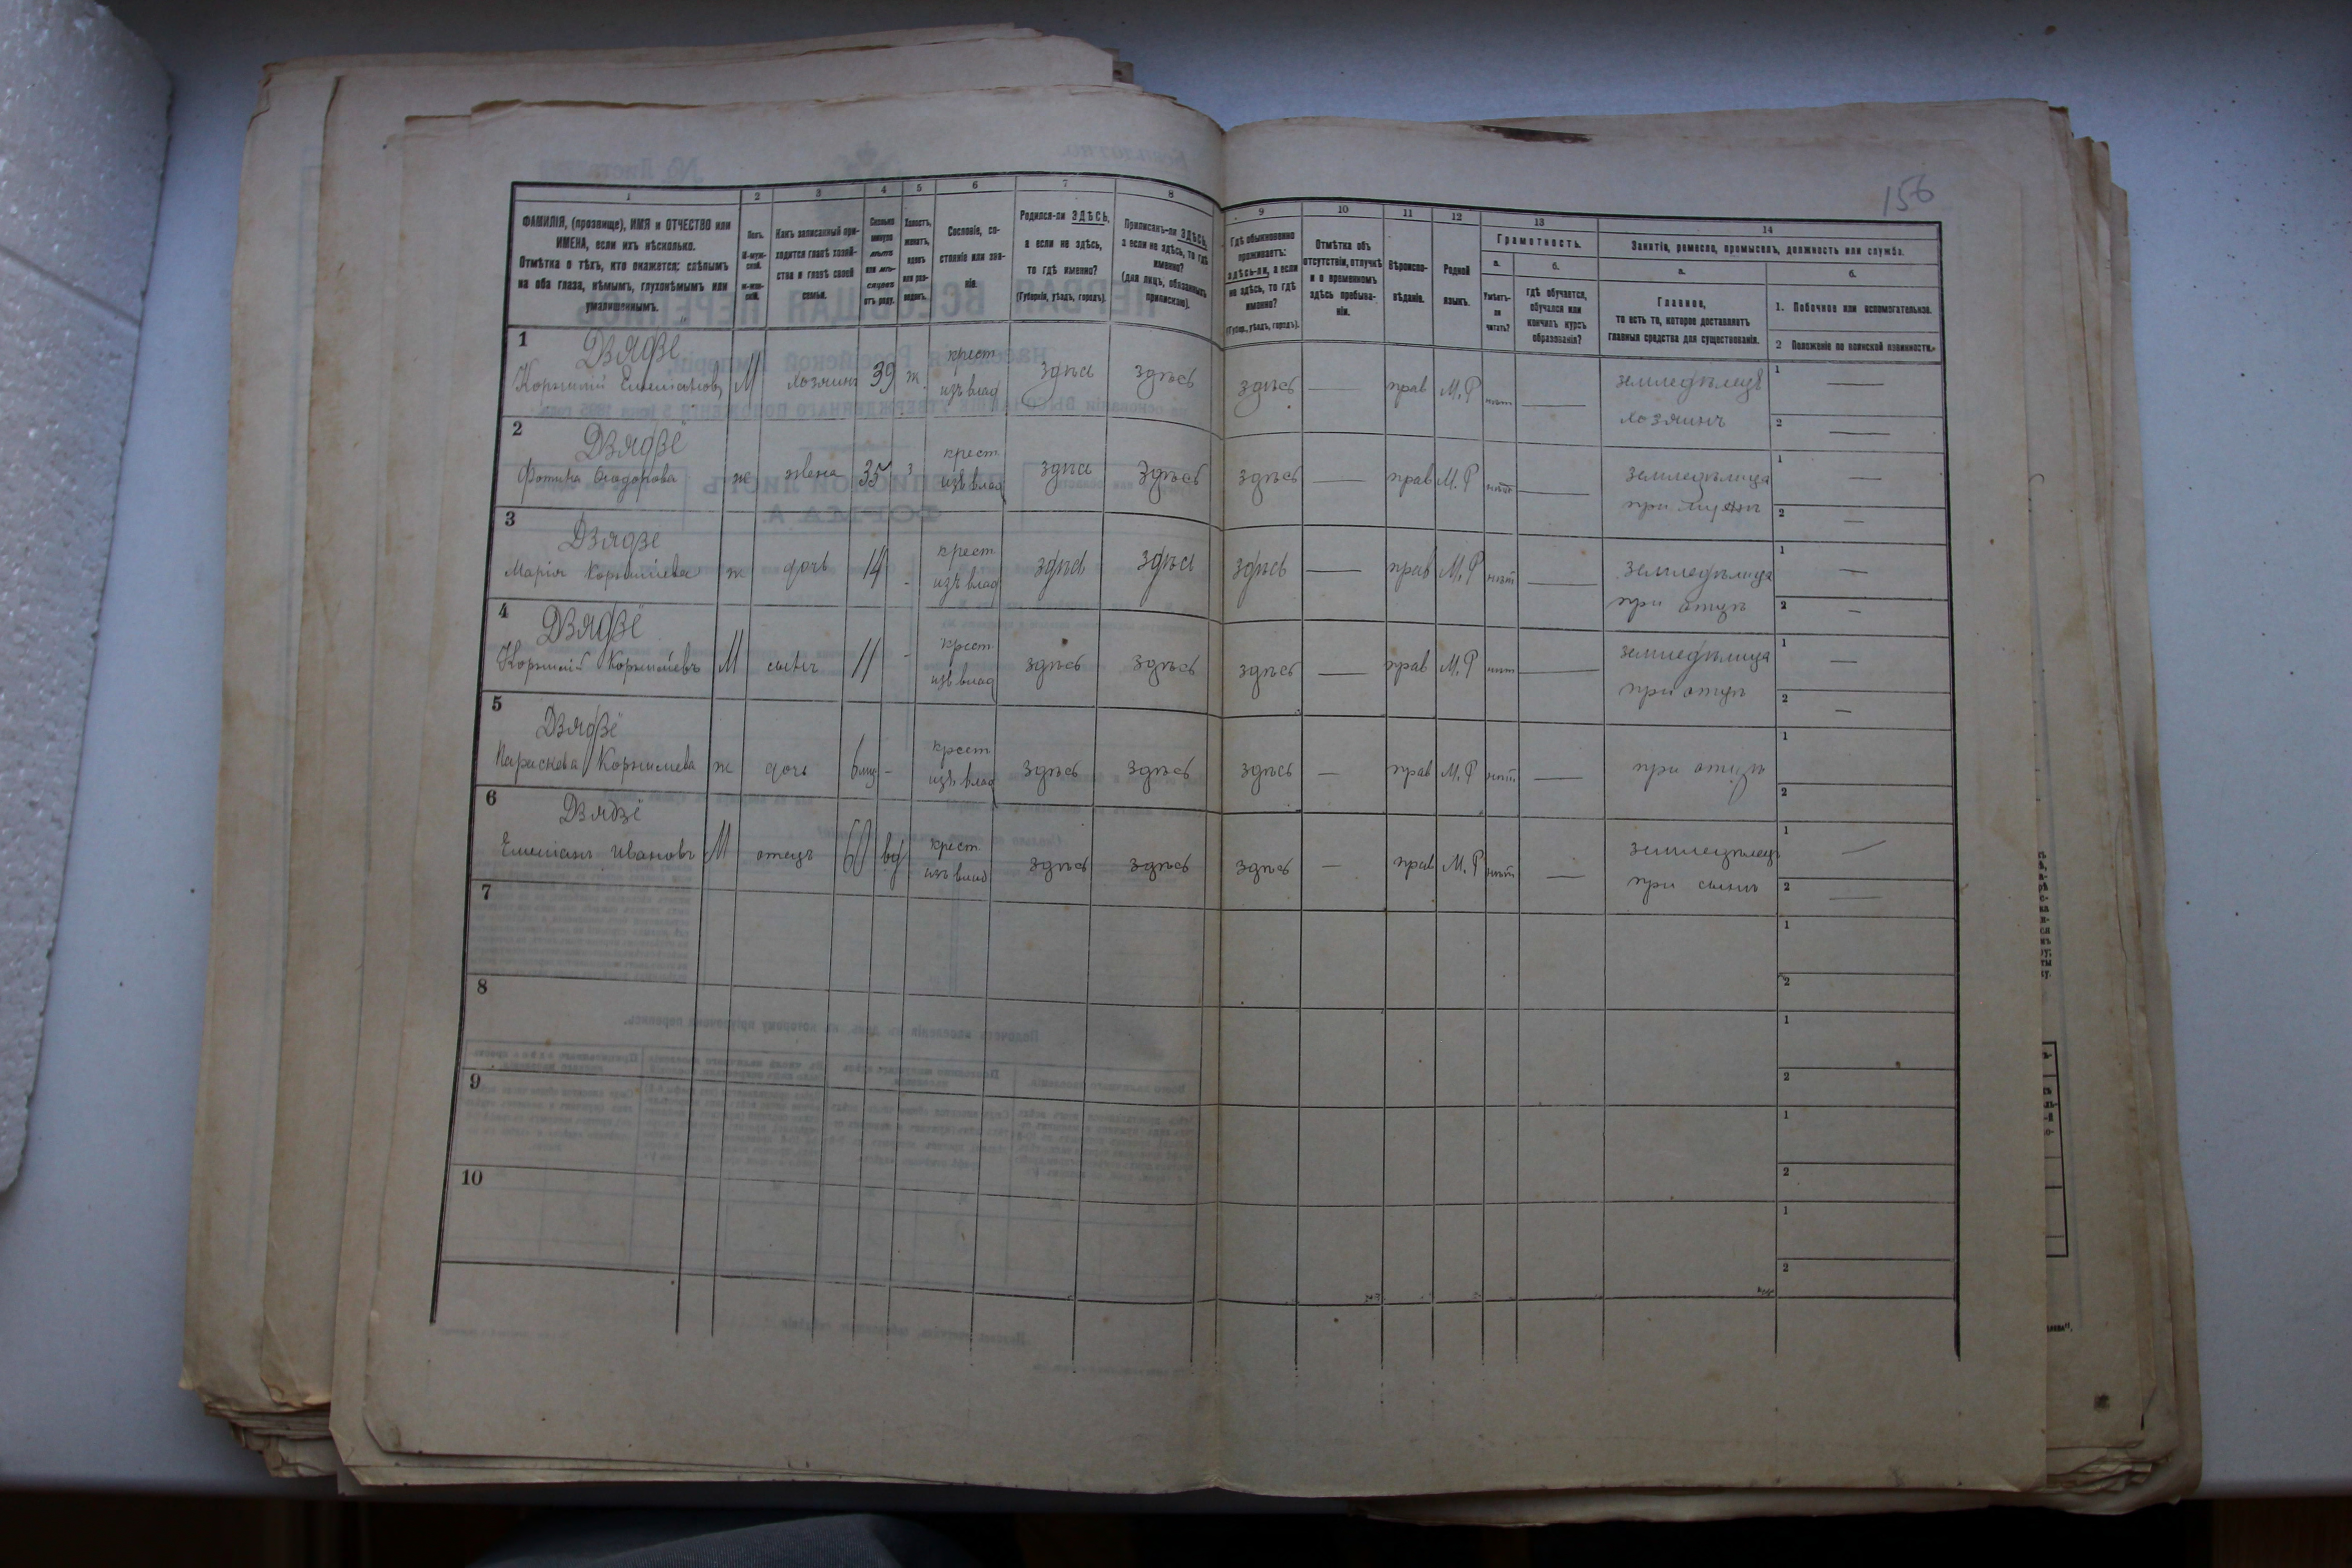 156
1 2 3 4 5 6 7 8 9 10 11 12 13 14
ФАМИЛІЯ, (прозвище), ИМЯ и ОТЧЕСТВО или
ИМЕНА, если ихъ нѣсколько.
Отмѣтка о тѣхъ, кто окажется: слѣпымъ
на оба глаза, нѣмымъ, глухонѣмымъ или
умалишеннымъ.
Полъ.
М-муж-
ской.
ж-жен-
скій.
Какъ записанный при-
ходится главѣ хозяй-
ства и главѣ своей
семьи.
Сколько
минуло
лѣтъ
или мѣ-
сяцевъ
отъ роду.
Холостъ,
женатъ,
вдовъ
или раз-
веденъ.
Сословіе, со-
стояніе или зва-
ніе.
Родился-ли ЗДѢСЬ,
а если не здѣсь,
то гдѣ именно?
(Губернія, уѣздъ, городъ).
Приписанъ-ли ЗДѢСЬ,
а если не здѣсь, то гдѣ
именно?
(для лицъ, обязанныхъ
припискою).
Гдѣ обыкновенно
проживаетъ:
здѣсь-ли, а если
не здѣсь, то гдѣ
именно?
(Губер., уѣздъ, городъ).
Отмѣтка объ
отсутствіи, отлучкѣ
и о временномъ
здѣсь пребыва-
ніи.
Вѣроиспо-
вѣданіе.
Родной
языкъ.
Грамотность.
а.
Умѣетъ-
ли
читать?
б.
Гдѣ обучается,
обучался или
кончилъ курсъ
образованія?
Занятіе, ремесло, промыселъ, должность или служба.
а.
Главное,
то есть то, которое доставляетъ
главныя средства для существованія.
б.
1. Побочное или вспомогательное.
2 Положеніе по воинской повинности.
1 Дзядзё
Корнилій Емеліановъ М хозяинъ 39 ж. крест изъ влад здѣсь здѣсь здѣсь — прав М. Р нѣтъ — земледѣлецъ хозяинъ 1 — 2 —
2 Дзядзё
Фотина Ѳеодорова ж жена 35 з крест изъ влад здѣсь здѣсь здѣсь — прав М. Р нѣтъ — земледѣлица при мужѣ 1 — 2 —
3 Дзядзё
Марія Корниліева ж дочь 14 - крест изъ влад здѣсь здѣсь здѣсь — прав М. Р нѣтъ — земледѣлица при отцѣ 1 — 2 —
4 Дзядзё
Корнилій Корниліевъ М сынъ 11 - крест изъ влад здѣсь здѣсь здѣсь — прав М. Р нѣтъ — земледѣлица при отцѣ 1 — 2 —
5 Дзядзё
Параскева Корнилева ж дочь 6 мц - крест изъ влад здѣсь здѣсь здѣсь — прав М. Р нѣтъ — при отцѣ 1 2
6 Дзядзё
Емеліанъ Ивановъ М отецъ 60 вд крест изъ влад здѣсь здѣсь здѣсь — прав М. Р нѣтъ — земледѣлецъ при сынѣ 1 — 2 —
7 1 2
8 1 2
9 1 2
10 1 2